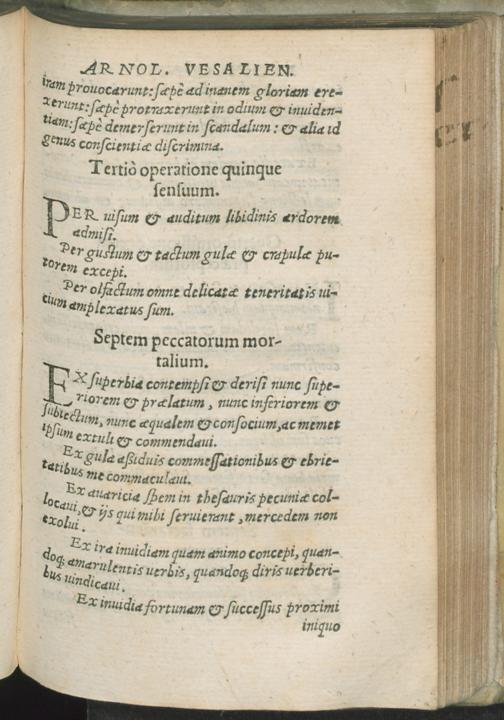 ARNOL. VESALIEN.
iram prouocarunt: sæpè ad inanem gloriam ere-
xerunt: sæpè protraxerunt in odium & inuiden-
tiam: sæpè demerserunt in scandalum: & alia id
genus conscientiæ discrimina.
Tertiò operatione quinque
sensuum.
PER uisum & auditum libidinis ardorem
admisi.
Per gustum & tactum gulæ & crapulæ pu-
torem excepi.
Per olfactum omne delicatæ teneritatis ui-
tium amplexatus sum.
Septem peccatorum mor-
talium.
EX superbia contempsi & derisi nunc supe-
riorem & prælatum, nunc inferiorem &
subiectum, nunc æqualem & consocium, ac memet
ipsum extuli & commendaui.
Ex gula aßiduis commessationibus & ebrie-
tatibus me commaculaui.
Ex auaricia spem in thesauris pecuniæ col-
locaui, & ijs qui mihi seruierant, mercedem non
exolui.
Ex ira inuidiam quam animo concepi, quan-
doq; amarulentis uerbis, quandoq; diris uerberi-
bus uindicaui.
Ex inuidia fortunam & successus proximi
iniquo